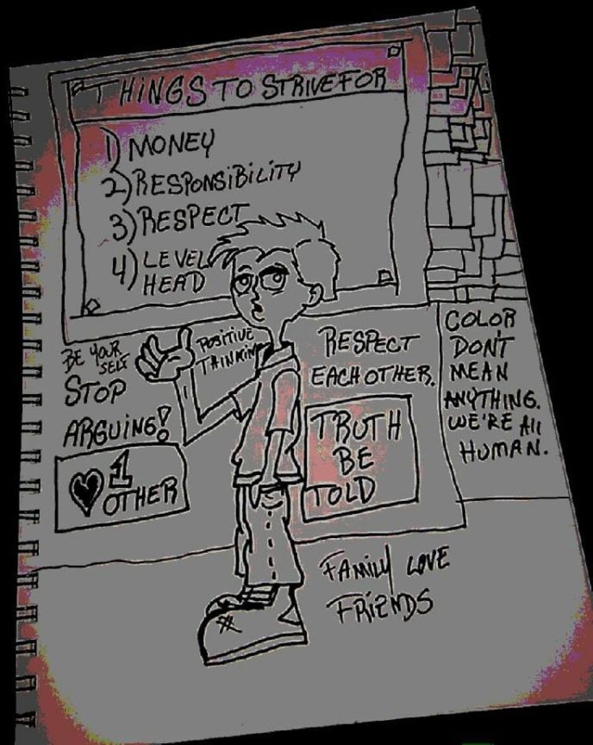 THINGS TO STRIVE FOR
1) MONEY
2) RESPONSIBILITY
3) RESPECT
4) LEVEL
HEAD
BE YOUR
SELF
STOP
ARGUING!
POSITIVE
THINKIN
RESPECT
EACH OTHER.
COLOR
DONT
MEAN
ANYTHING.
WE'RE All
HUMAN.
♥ 1
OTHER
TRUTH
BE
TOLD
FAMILY LOVE
FRIENDS